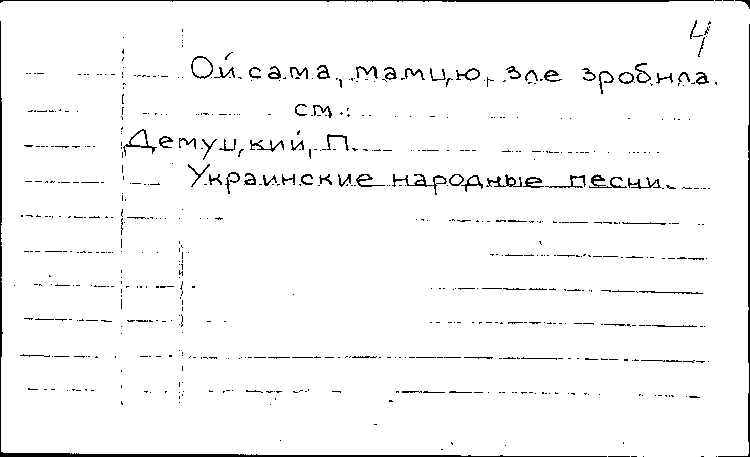 4
Ой сама, мамцю, зле зробила.
см.:
Демуцкий, П.
Украинские народные песни.